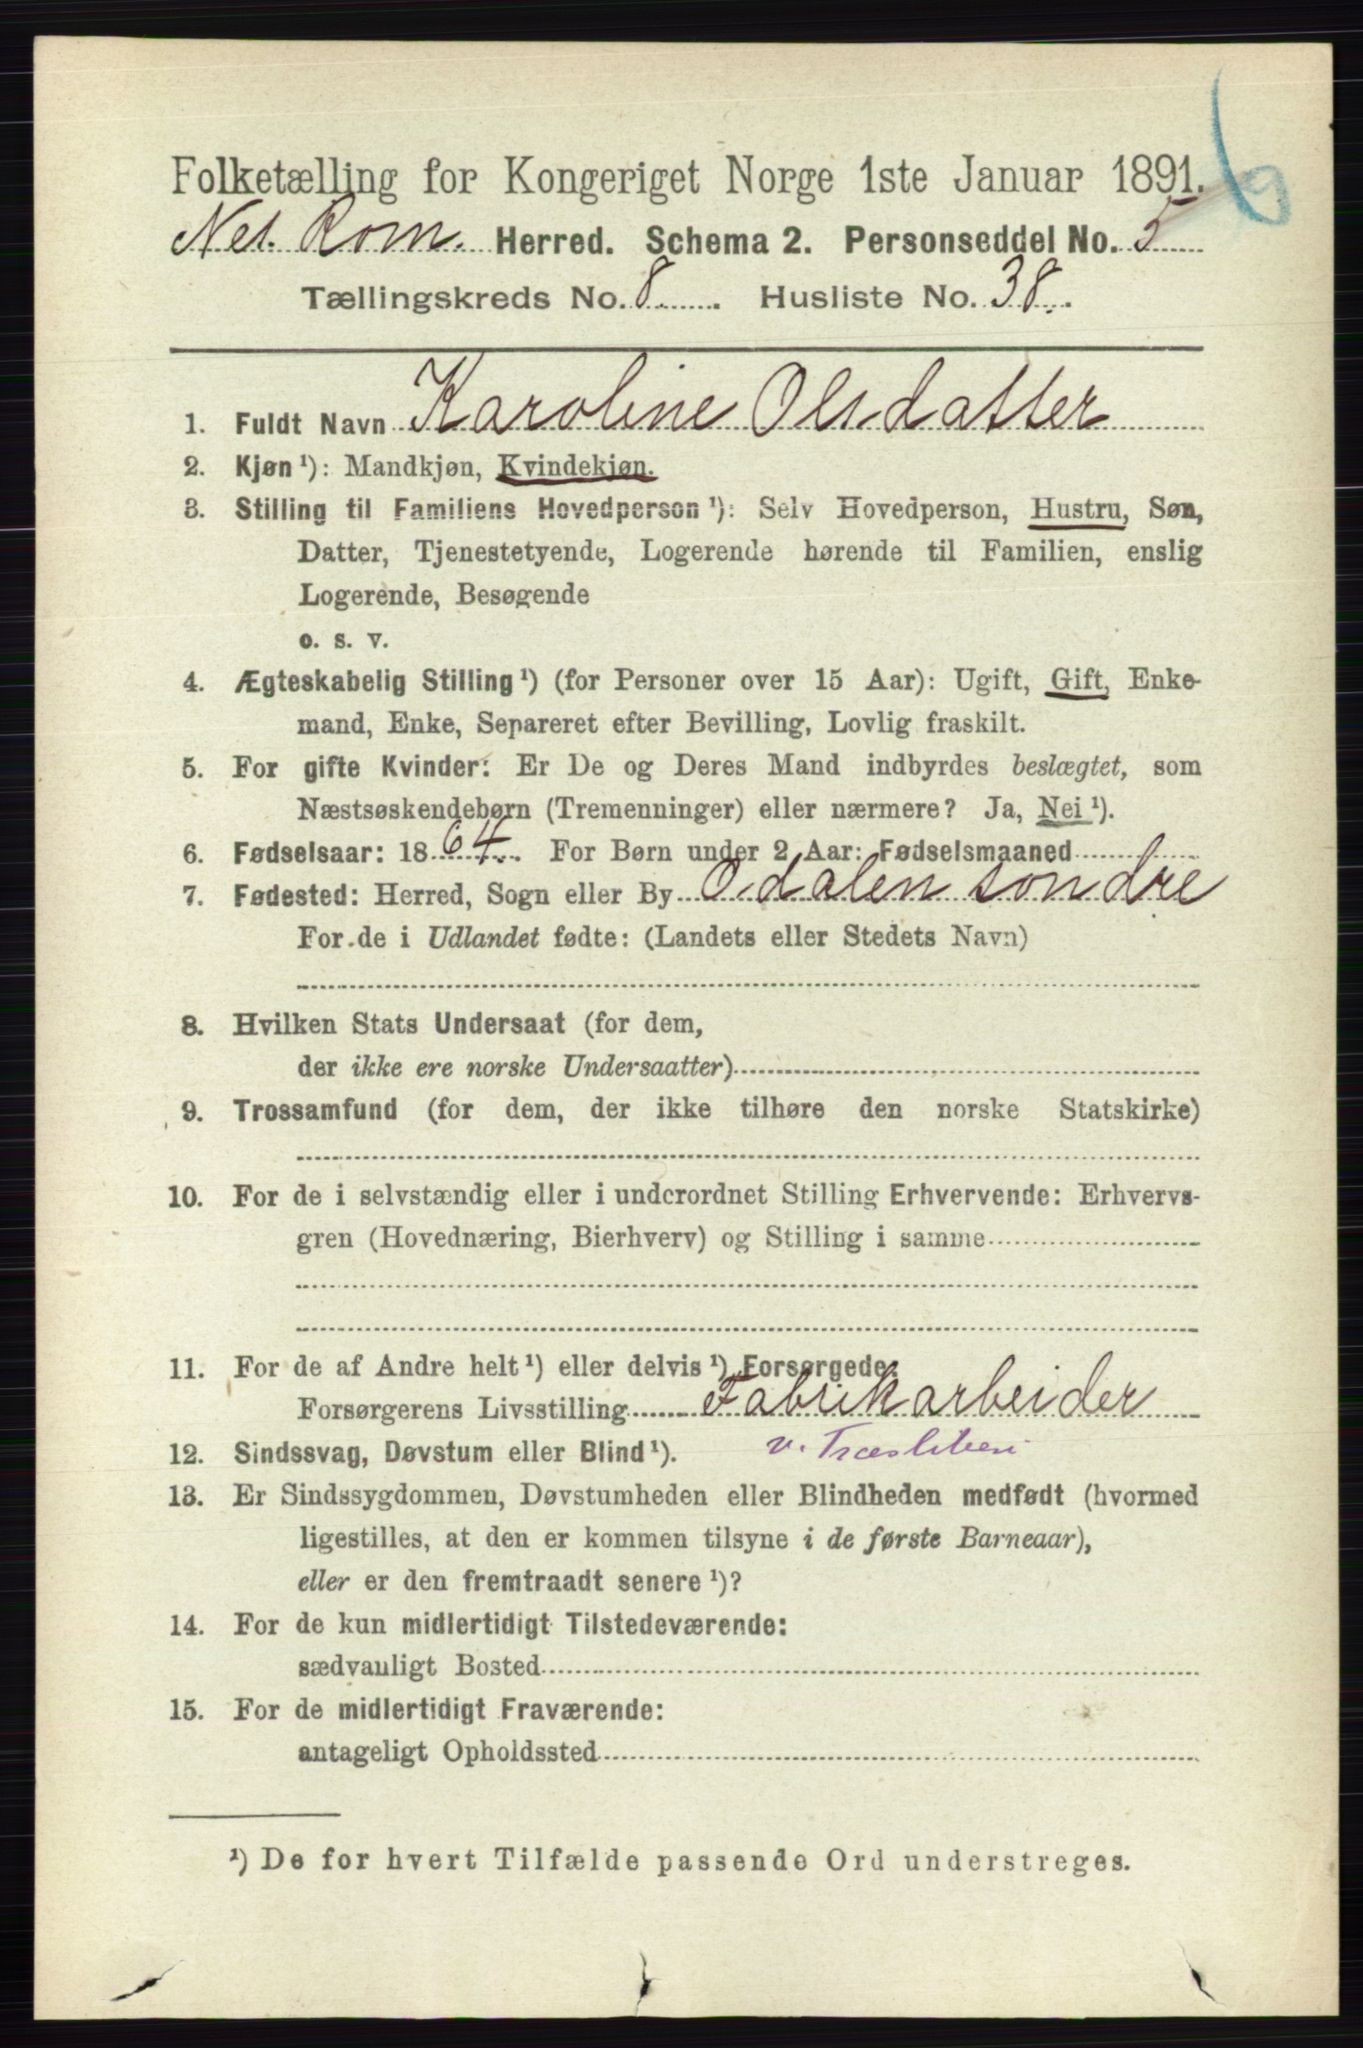 6
Folketælling for Kongeriget Norge 1ste Januar 1891.
Nes. Rom. Herred. Schema 2. Personseddel No. 5
Tællingskreds No. 8. Husliste No. 38.
1. Fuldt Navn Karoline Olsdatter
2. Kjøn ¹): Mandkjøn, Kvindekjøn.
3. Stilling til Familiens Hovedperson ¹): Selv Hovedperson, Hustru, Søn,
Datter, Tjenestetyende, Logerende hørende til Familien, enslig
Logerende, Besøgende
o. s. v.
4. Ægteskabelig Stilling ¹) (for Personer over 15 Aar): Ugift, Gift, Enke-
mand, Enke, Separeret efter Bevilling, Lovlig fraskilt.
5. For gifte Kvinder: Er De og Deres Mand indbyrdes beslægtet, som
Næstsøskendebørn (Tremenninger) eller nærmere? Ja, Nei ¹).
6. Fødselsaar: 1864. For Børn under 2 Aar: Fødselsmaaned
7. Fødested: Herred, Sogn eller By Odalen søndre
For de i Udlandet fødte: (Landets eller Stedets Navn)
8. Hvilken Stats Undersaat (for dem,
der ikke ere norske Undersaatter)
9. Trossamfund (for dem, der ikke tilhøre den norske Statskirke)
10. For de i selvstændig eller i underordnet Stilling Erhvervende: Erhvervs-
gren (Hovednæring, Bierhverv) og Stilling i samme
11. For de af Andre helt ¹) eller delvis ¹) Forsørgede:
Forsørgerens Livsstilling Fabrikarbeider
v. Træsliberi
12. Sindssvag, Døvstum eller Blind ¹).
13. Er Sindssygdommen, Døvstumheden eller Blindheden medfødt (hvormed
ligestilles, at den er kommen tilsyne i de første Barneaar),
eller er den fremtraadt senere ¹)?
14. For de kun midlertidigt Tilstedeværende:
sædvanligt Bosted
15. For de midlertidigt Fraværende:
antageligt Opholdssted
¹) De for hvert Tilfælde passende Ord understreges.